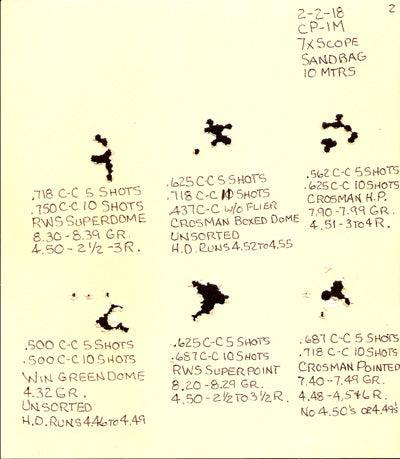 2
2-2-18
CP-1M
7X SCOPE
SANDBAG
10 MTRS
.718 C-C 5 SHOTS
.750 C-C 10 SHOTS
RWS SUPERDOME
8.30 - 8.39 GR.
4.50 - 2 1/2 - 3R.
.625 C-C 5 SHOTS
.718 C-C 10 SHOTS
.437 C-C W/O FLIER
CROSMAN BOXED DOME
UNSORTED
H.D. RUNS 4.52 TO 4.55
.562 C-C 5 SHOTS
.625 C-C 10 SHOTS
CROSMAN H.P.
7.90 - 7.99 GR.
4.51 - 3 TO 4 R.
.500 C-C 5 SHOTS
.500 C-C 10 SHOTS
WIN GREEN DOME
4.32 GR.
UNSORTED
H.D. RUNS 4.46 TO 4.49
.625 C-C 5 SHOTS
.687 C-C 10 SHOTS
RWS SUPERPOINT
8.20 - 8.29 GR.
4.50 - 2 1/2 TO 3 1/2 R.
.687 C-C 5 SHOTS
.718 C-C 10 SHOTS
CROSMAN POINTED
7.40 - 7.49 GR.
4.48 - 4,5 & 6 R.
NO 4.50'S OR 4.49'S